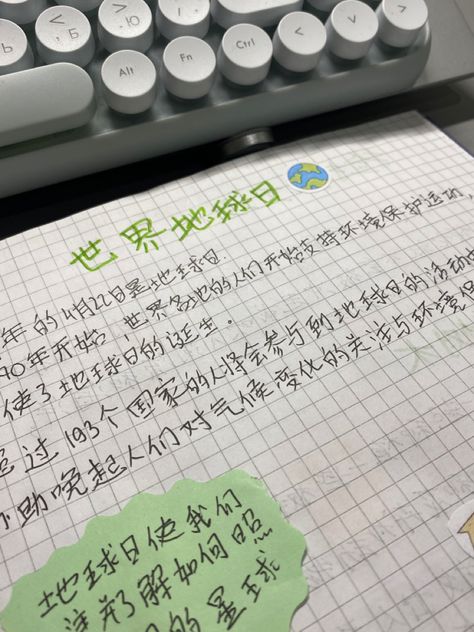 Ь
Б
<
Ю
>
Alt
Fn
Ctrl
<
∨
>
世界地球日
年的4月22日是地球日.
90年开始,世界各地的人们开始支持环境保护运动
使了地球日的诞生.
超过193个国家的人将会参与到地球日的活动中
助唤起人们对气候变化的关注与环境保
地球日使我们
并了解如何照
的星球